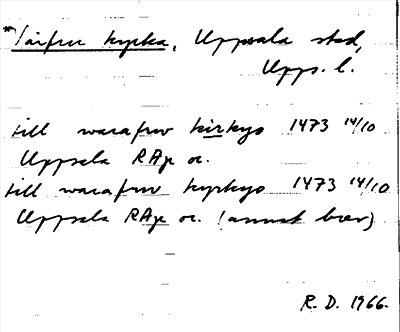 *Vårfru kyrka, Uppsala stad,
Upps. l.
till warafrw kirkyo 1473 14/10
Uppsala RAp or.
till warafrw kyrkyo 1473 14/10
Uppsala RAp or. (annat brev)
R. D. 1966.